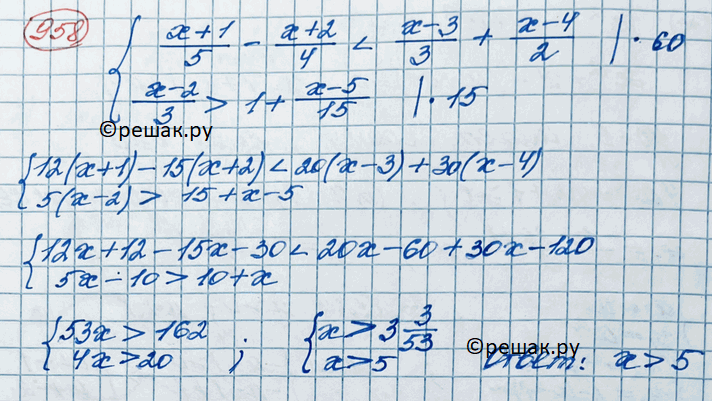 958
{ (x+1)/5 - (x+2)/4 < (x-3)/3 + (x-4)/2 |·60
(x-2)/3 > 1 + (x-5)/15 |·15
©решак.ру
{ 12(x+1)-15(x+2)<20(x-3)+30(x-4)
5(x-2) > 15+x-5
{ 12x+12-15x-30<20x-60+30x-120
5x-10>10+x
{ 53x>162 ; { x>3 3/53
4x>20 x>5 Ответ: x>5
©решак.ру